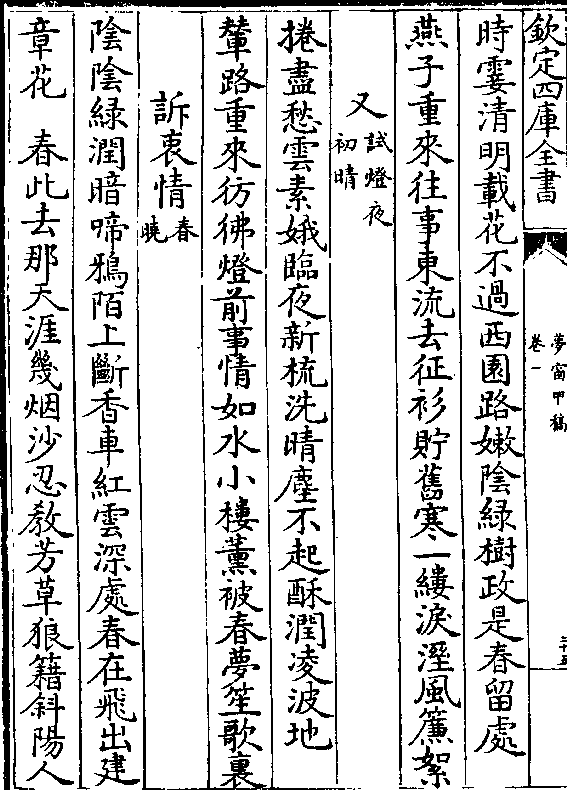 欽定四庫全書
夢窗甲稿
卷一
時霎清明載花不過西園路嫩陰綠樹政是春留處
燕子重來往事東流去征衫貯舊寒一縷淚溼風簾絮
又試燈夜
初晴
捲盡愁雲素娥臨夜新梳洗晴塵不起酥潤凌波地
輦路重來彷彿燈前事情如水小樓薰被春夢笙歌裏
訴衷情春
曉
陰陰綠潤暗啼鴉陌上斷香車紅雲深處春在飛出建
章花　春此去那天涯幾烟沙忍教芳草狼籍斜陽人